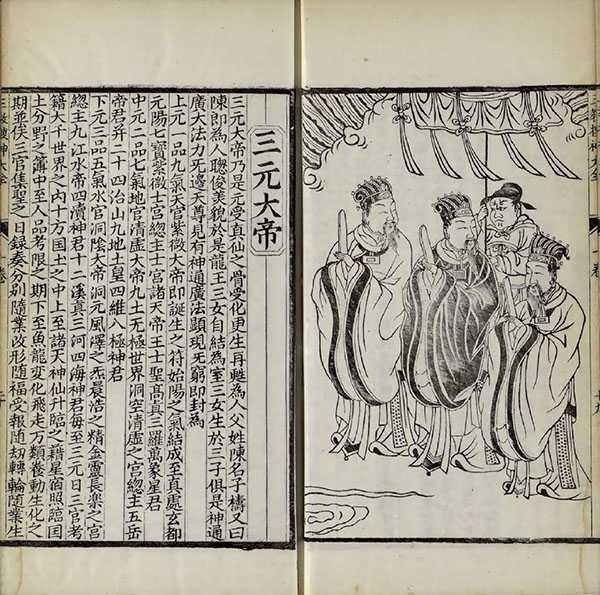 三元大帝
三元大帝乃是元受真仙之骨受化更生再甦為人父姓陳名子檮又曰
陳郎為人聰俊美貌於是龍王三女自結為室三女生於三子俱是神通
廣大法力旡邊天尊見有神通廣法顯現旡窮即封為
上元一品九氣天官紫微大帝即誕生之符始陽之氣結成至真處玄都
元陽七寶紫微上宮總主上宮諸天帝王上聖高真三羅萬象星君
中元二品七氣地官清虛大帝九土无極世界洞空清虛之宮總主五岳
帝君并二十四治山九地土皇四維八極神君
下元三品五氣水官洞陰大帝洞元風澤之炁晨浩之精金靈長樂之宮
總主九江水帝四瀆神君十二溪真三河四海神君每至三元日三官考
籍大千世界之內十方国土之中上至諸天神仙升臨之籍星宿照臨国
土分野之簿中至人品考限之期下至魚龍變化飛走万類養動生化之
期並俟三官集聖之日録奏分別隨業改形隨福受報随劫轉輪隨業生